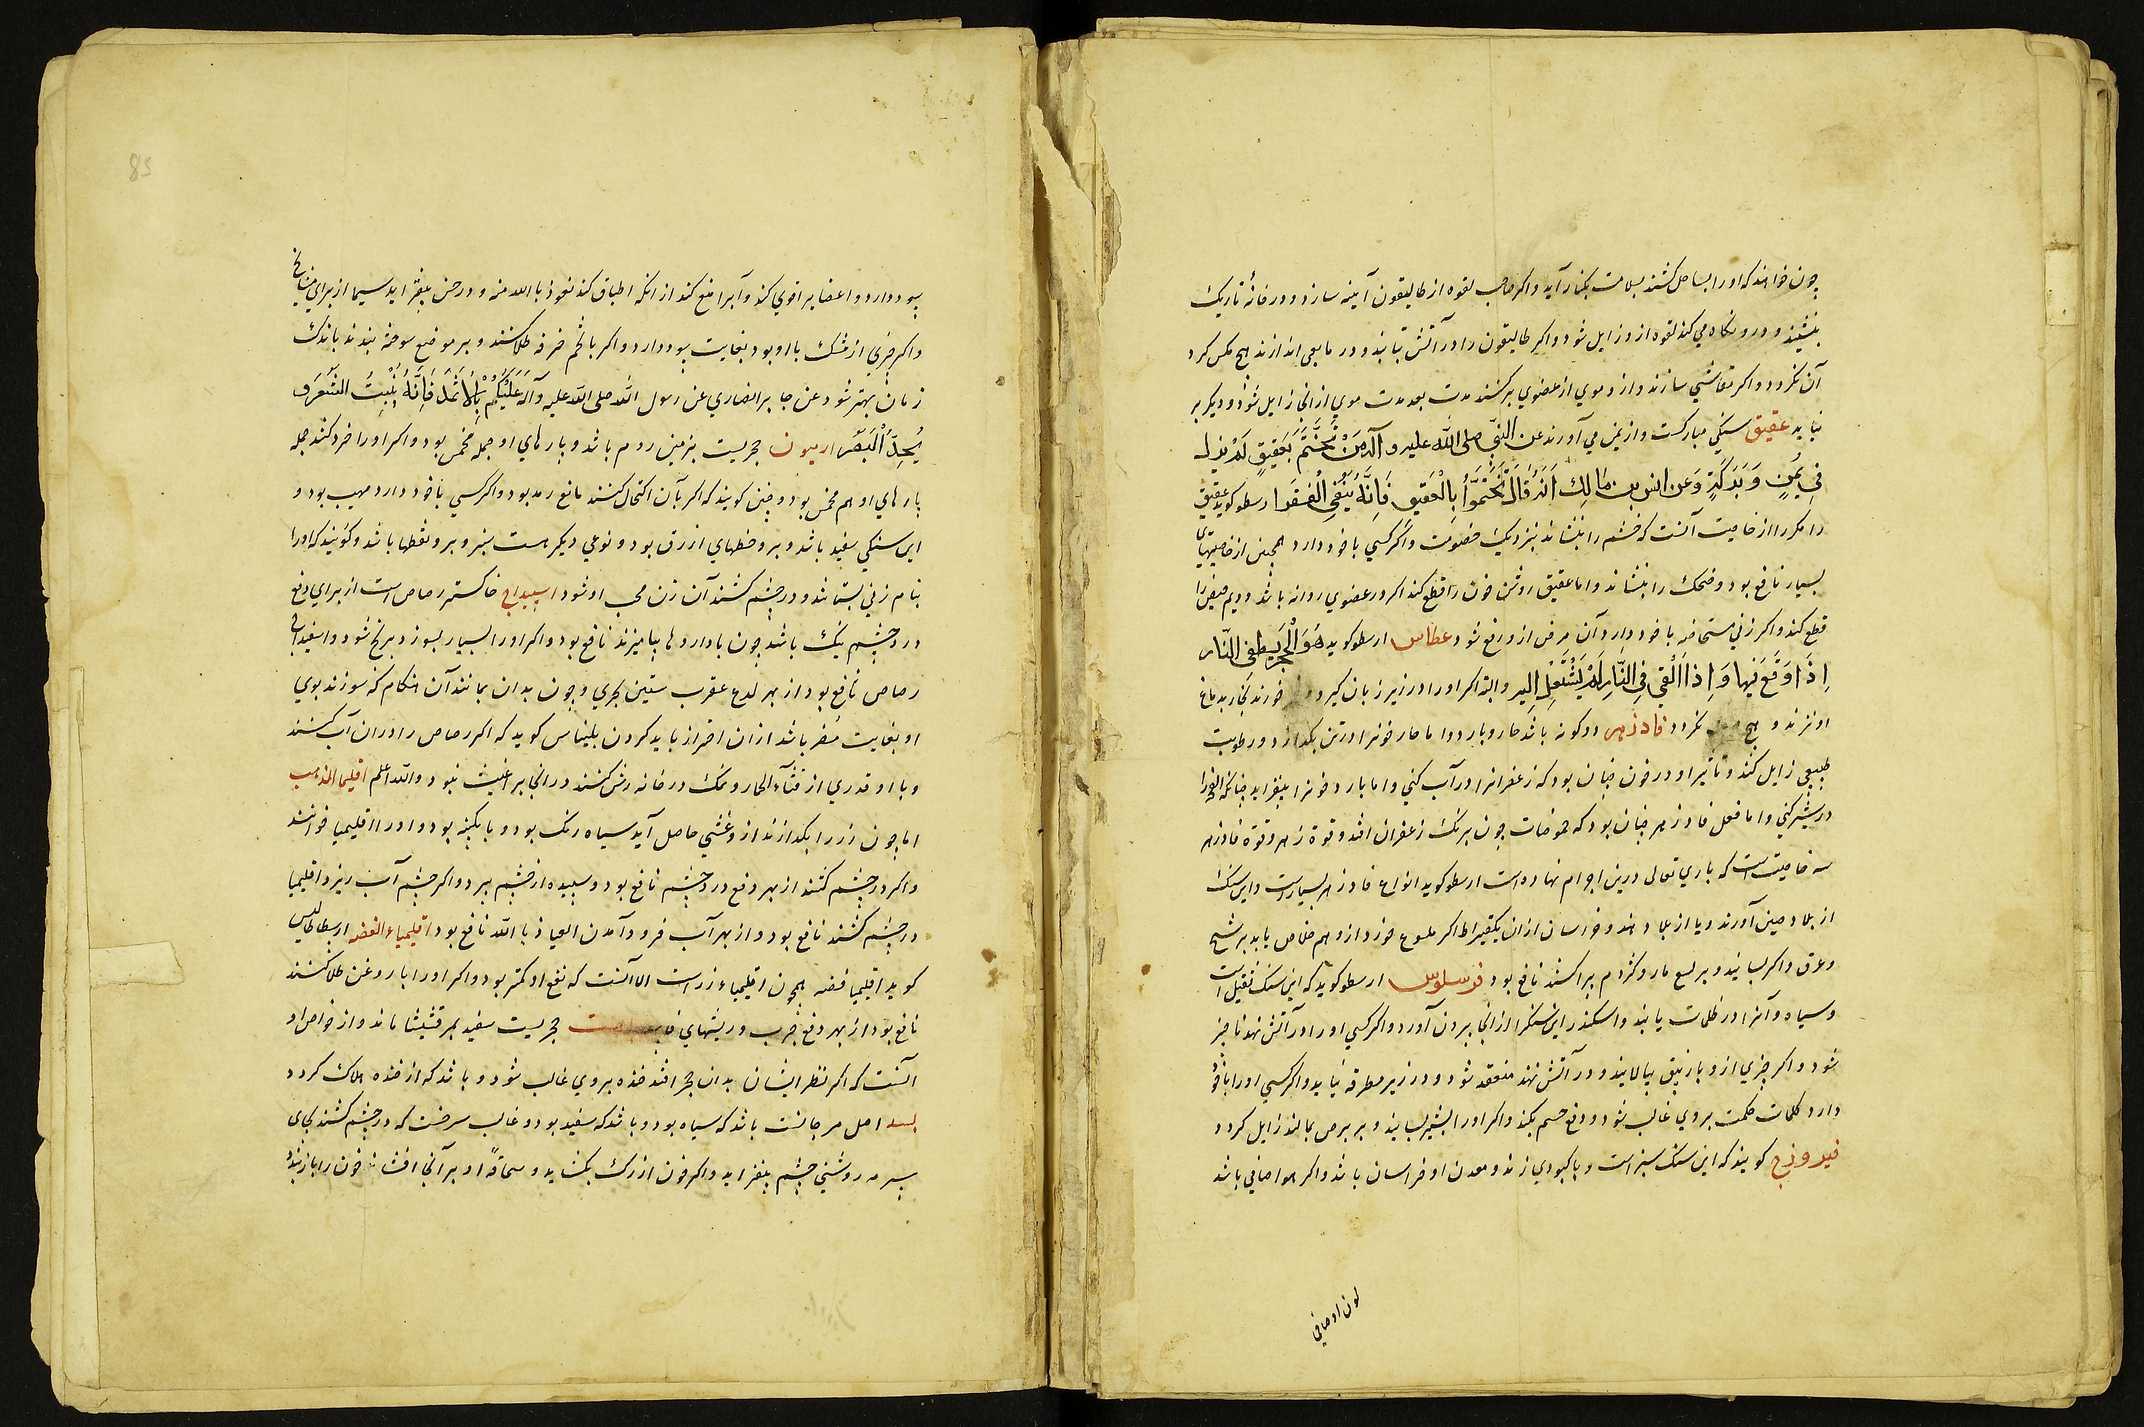 چون خواهند که اورا بساحل کشند بسلامت بکنار آید واکر صاحب لقوه از طالیقون آینه سازد و در خانهٔ تاریک
بنشیند و درو نکاه می کند لقوه ازو زایل شود واکر طالیقون را در آتش تبابند و در مایعی اندازند هیچ مکس کرد
آن نکردد واکر منقاشی سازند و ازو موی از عضوی برکنند مدت بعد مدت موی از انجا زایل شود و دیکر بر
نیاید عقیق سنکی مبارکست و از یمن می آورند عن النبی صلی الله علیه و آله مَنْ تَخَتَّمَ بِعَقِیقٍ لَمْ یَزل
فِی یُمنٍ وَ بَرَکَةٍ وَعن انس بن مَالِك اَنَّهُ قَالَ تَخَتَّمُوا بِالْعَقِیقِ فَاِنَّهُ یَنْفِی الْفَقرَ ارسطو کوید عقیق
را مکرر از خاصیت آنست که خشم را بنشاند بنزدیک خصومت واکر کسی با خود دارد همچنین از خاصیتهای
بسیار نافع بود و ضحک را بنشاند و اما عقیق روشن خون را قطع کند اکر در عضوی روانه باشد و دیم حیض را
قطع کند واکر زنی مستحاضه با خود دارد آن مرض ازو رفع شود عطاس ارسطو کوید هُوَ الْحَجَر یطفی النَّار
اِذَا وَقَعَ فَیهَا وَ اِذا اُلْقِیَ فِی النَّارِ لَمْ یَشْتَعِلِ اِلیهِ والبته اکر اورا در زیر زبان کیرد و خورند بخار بدماغ
او نرند و هیچ نکردد فادزهر دوکونه باشد حار و بارد و اما حار خونرا در تن بکدازد و رطوبت
طبیعی زایل کند و تاثیر او در خون چنان بود که زعفرانرا در آب کنی و اما بارد خونرا بیفزاید چنانکه انفحه را
در شیر کنی و اما فعل فادزهر چنان بود که حموضات چون برنک زعفران افتد و قوة زهر و قوة فادزهر
سه خاصیتست که باری تعالی درین اجرام نهاده است ارسطو کوید انواع فادزهر بسیارست و این سنک
از بلاد چین آورند و یا از بلاد هند و خراسان ازان یکقیراط اکر ملسوع خورد ازو هم خلاص یابد بر شح
وعرق واکر بسایند و بر لسع مار و کژدم پراکنند نافع بود فرسلوس ارسطو کوید که این سنک ثقیل است
و سیاه و آنرا در ظلمات یابند و اسکندر این سنکرا از انجا بیرون آورد واکر کسی اورا در آتش نهد ناچیز
نشود واکر چیزی ازو با زیبق بیالایند و در آتش نهند منعقد شود و در زیر مطرقه نیاید واکر کسی اورا با خود
دارد کلمات حکمت بروی غالب شود و دفع حسم بکند واکر اورا بشیر بسایند و بر برص بمالند زایل کردد
فیروزج کویند که این سنک سبز است و با کبودی زند و معدن او خراسان باشد واکر هوا صافی باشد
لون او صافی
85
سود دارد و اعضا را قوی کند و آنرا منع کند از انکه اطباق کند نعوذ بالله منه و در حسن بیفزاید سیما از برای مشایخ
واکر چیزی از مشک با او بود بغایت سود دارد واکر با شحم خرفه طلا کنند و بر موضع سوخته نهند باندک
زمان بهتر شود عن جابر انصاری عن رسول الله صلی الله علیه وآله عَلَیْکُمْ بِالْاِثْمَدِ فَاِنَّهُ یُنْبِتُ الشَّعَرَ وَ
یُحِدُّ الْبَصَر ارمیون حجریست بزمین روم باشد و پارهای او جمله مخمس بود واکر اورا خرد کنند جمله
پارهای او هم مخمس بود و چنین کویند که اکر بآن اکتحال کنند مانع رمد بود واکر کسی با خود دارد مهیب بود و
این سنکی سفید باشد و برو خطهای ازرق بود و نوعی دیکر هست سبز و برو نقطها باشد وکویند که اورا
بنام زنی بستانند و در چشم کشند آن زن محب او شود اسپیداج خاکستر رصاص است از برای دفع
درد چشم نیک باشد چون با داروها بیامیزند نافع بود واکر اورا بسیار بسوزد برنج شود و اسفیداج
رصاص نافع بود از بهر لدغ عقرب ستین بحری و چون بدان بمانند آن هنکام که سوزند بوی
او بغایت مضر باشد ازان احتراز باید کردن بلیناس کوید که اکر رصاص را دران آب کنند
و با او قدری از قثاء الحمار و نمک در خانه رش کنند در انجا براغیث نبود والله اعلم اقلیما الذهب
اما چون زر را بکدازند ازو غشی حاصل آید سیاه رنک بود و با بکینه بود و اورا اقلیمیا خوانند
واکر در چشم کنند از بهر دفع درد چشم نافع بود و سپیده از چشم ببرد واکر چشم آب ریزد اقلیمیا
در چشم کشند نافع بود و از بهر آب فرود آمدن العیاذ بالله نافع بود اقلیمیاء الفضه ارسطاطالیس
کوید اقلیمیا فضه همچون اقلیمیاء زراست الا آنست که نفع او کمتر بود واکر اورا با روغن طلا کنند
نافع بود از بهر دفع جرب و ریشهای حجریست سفید بمرقشیشا ماند و از خواص او
آنست که اکر نظر انسان بدان حجر افتد خنده بروی غالب شود و باشد که از خنده هلاک کردد
بسد اصل مرجانست باشد که سیاه بود و باشد که سفید بود و غالب سرخست که در چشم کشند بجای
سرمه روشنی چشم بیفزاید واکر خون از رک بکشاید و سحاقهٔ او بر آنجا افشانند خون را باز بندد